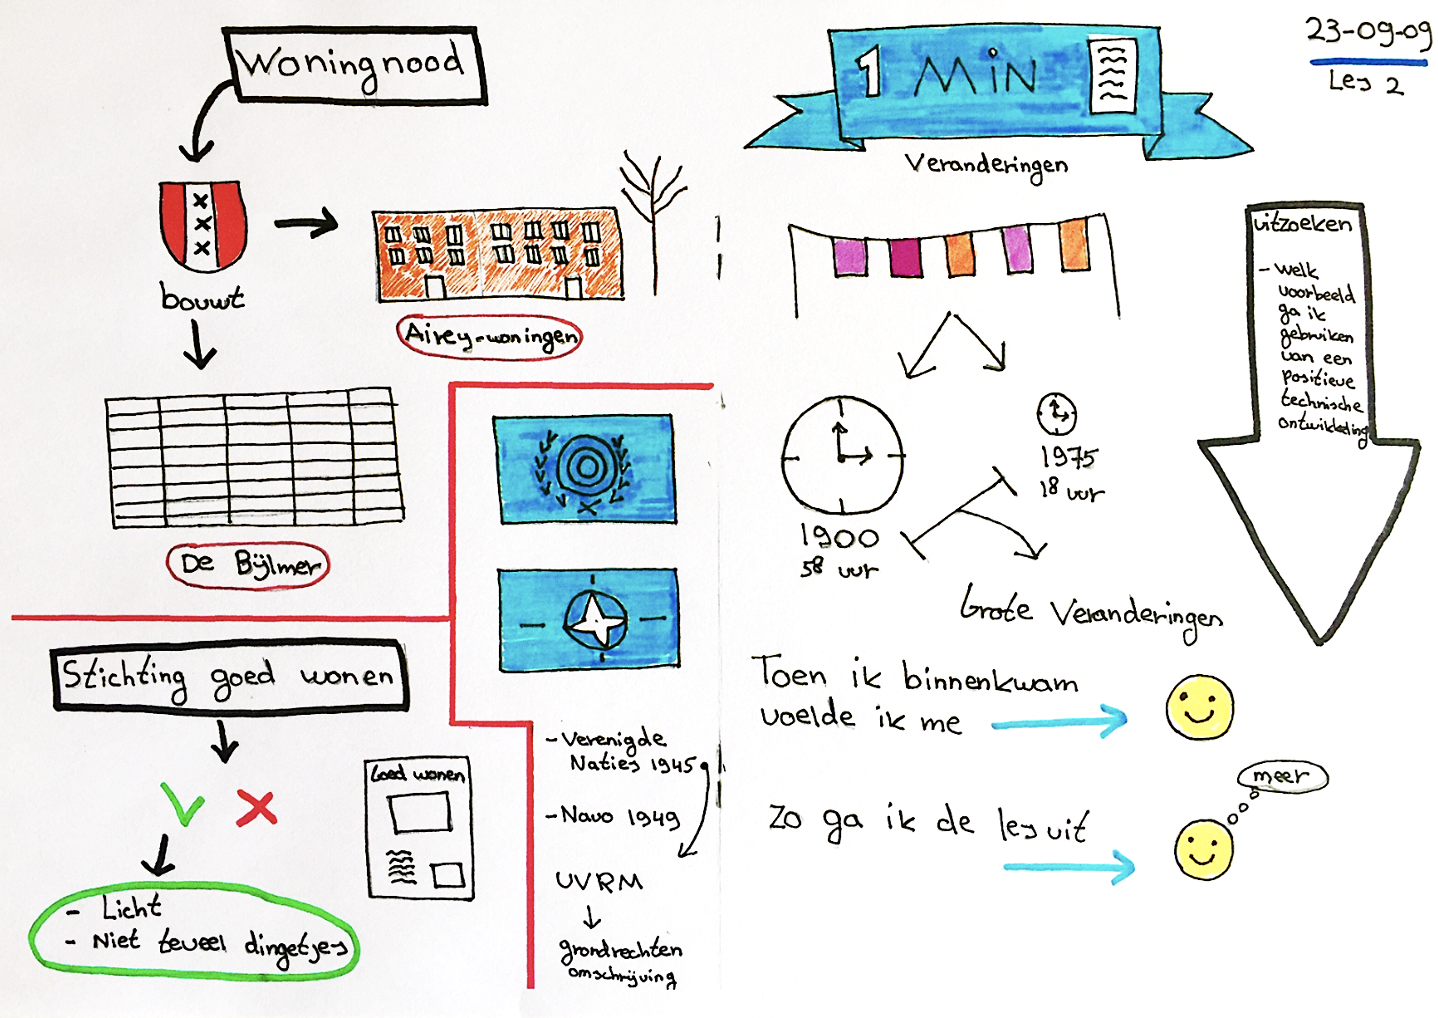 Woningnood
bouwt
Airey-woningen
De Bijlmer
Stichting goed wonen
Goed wonen
- Licht
- Niet teveel dingetjes
- Verenigde
Naties 1945
- Navo 1949
UVRM
grondrechten
omschrijving
1 MiN
Veranderingen
23-09-09
Les 2
1900
58 uur
1975
18 uur
Grote Veranderingen
uitzoeken
- welk
voorbeeld
ga ik
gebruiken
van een
positieve
technische
ontwikkeling
Toen ik binnenkwam
voelde ik me
meer
Zo ga ik de les uit